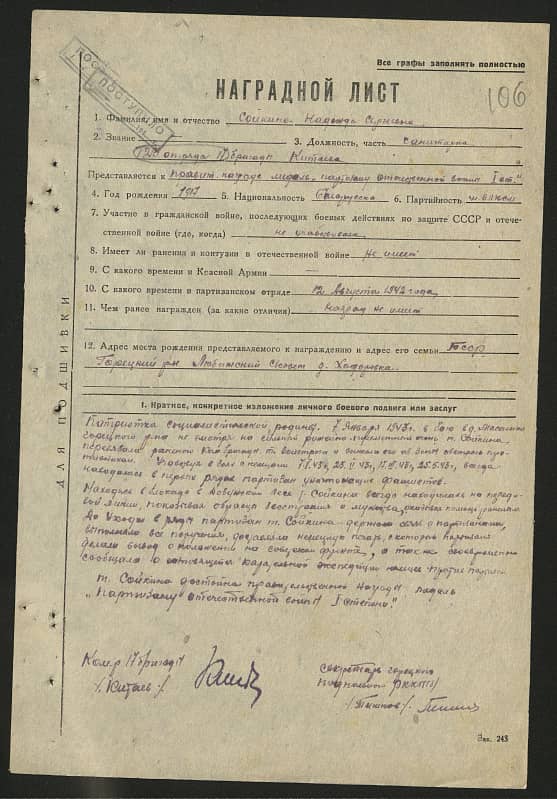 Все графы заполнять полностью
ПОСТУПИЛО
106
НАГРАДНОЙ ЛИСТ
1. Фамилия, имя и отчество Сойкина Надежда
2. Звание 3. Должность, часть санитарка
отряда 17 бригады Китаева
Представляется к правит. награде медаль "партизану отечественной войны I ст."
4. Год рождения 1917 5. Национальность белоруска 6. Партийность чл. ВЛКСМ
7. Участие в гражданской войне, последующих боевых действиях по защите СССР и отече-
ственной войне (где, когда) не участвовала
8. Имеет ли ранения и контузии в отечественной войне Не имеет
9. С какого времени в Красной Армии —
10. С какого времени в партизанском отряде 12 Августа 1942 года
11. Чем ранее награжден (за какие отличия) наград не имеет
12. Адрес места рождения представляемого к награждению и адрес его семьи БССР
Горецкий р-н сельсовет д. Ходоровка
ДЛЯ ПОДШИВКИ
1. Краткое, конкретное изложение личного боевого подвига или заслуг
Патриотка социалистической родины. 7 Января 1943 г. в бою в д.
Горецкого р-на не смотря на сильный ружейно-пулеметный огонь т. Сойкина
перевязала раненого т. и вынесла его из зоны обстрела про-
тивником. Участвуя в боях с немцами всегда
находилась в первых рядах партизан уничтожающих фашистов.
Находясь в блокаде в лесу т. Сойкина всегда находилась на передо-
вой линии, показывая образцы бесстрашия и мужества, оказывая помощь раненым
До ухода в ряды партизан т. Сойкина держала связь с партизанами,
выполняла все поручения, доставляла немецкую
делали вывод о положении на советском фронте, а так же своевременно
сообщала о готовящейся карательной экспедиции немцев против партизан
т. Сойкина достойна правительственной награды медаль
"Партизану отечественной войны I степени".
Комбриг 17 бригады
/Китаев/
секретарь Горецкого
подпольного РККП(б)
Зак. 243